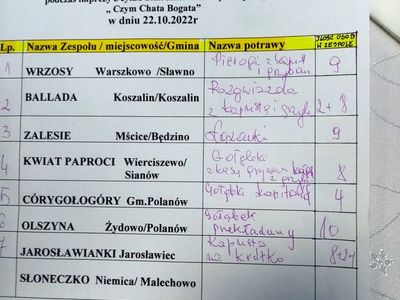 podczas imprezy
„ Czym Chata Bogata”
w dniu 22.10.2022r
Lp. Nazwa Zespołu / miejscowość/Gmina Nazwa potrawy ILOŚĆ OSÓB W ZESPOLE
1 WRZOSY Warszkowo /Sławno Pierogi z kapust i grzybam 9
2 BALLADA Koszalin/Koszalin z kapustą i grzyb 2+8
3 ZALESIE Mścice/Będzino 9
4 KWIAT PAPROCI Wierciszewo/ Sianów Gołąbki 8
5 CÓRYGOŁOGÓRY Gm.Polanów Gołąbki 4
6 OLSZYNA Żydowo/Polanów Gołąbek przekładany 10
7 JAROSŁAWIANKI Jarosławiec Kapusta na krótko
SŁONECZKO Niemica/ Malechowo